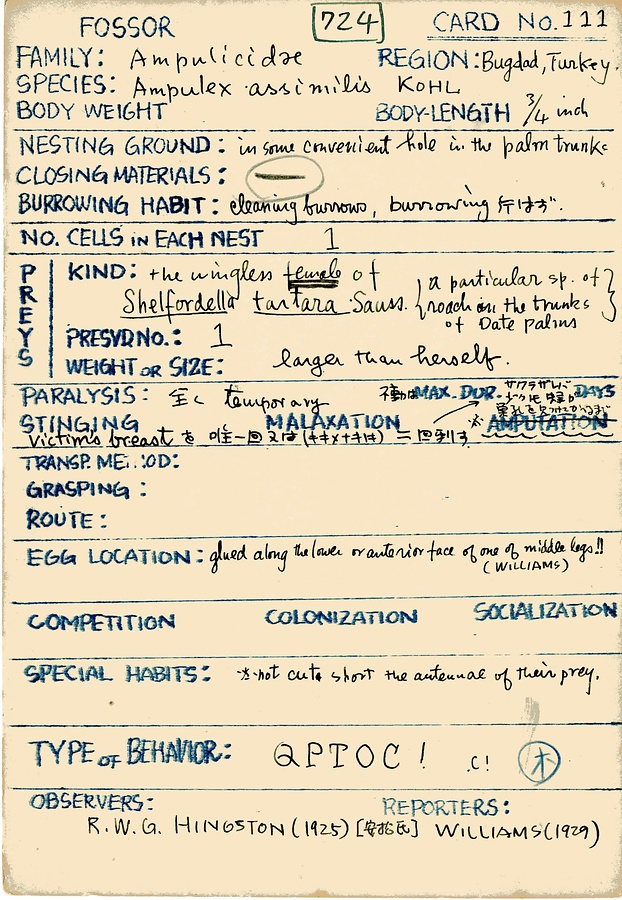 FOSSOR 724 CARD No. 111
FAMILY: Ampulicidae REGION: Bugdad, Turkey.
SPECIES: Ampulex assimilis KOHL
BODY WEIGHT BODY-LENGTH 3/4 inch
NESTING GROUND: in some convenient hole in the palm trunks
CLOSING MATERIALS: —
BURROWING HABIT: cleaning burrows, burrowing 行はず.
NO. CELLS IN EACH NEST 1
PREYS
KIND: the wingless female of { a particular sp. of
Shelfordella tartara Sauss. roach on the trunks
of Date palms }
PRESVD NO.: 1
WEIGHT OR SIZE: larger than herself.
PARALYSIS: 全く temporary MAX. DUR. DAYS
STINGING MALAXATION ※ AMPUTATION
victim's breast を 唯一回又は
TRANSP. ME..OD:
GRASPING:
ROUTE:
EGG LOCATION: glued along the lower or anterior face of one of middle legs!!
(WILLIAMS)
COMPETITION COLONIZATION SOCIALIZATION
SPECIAL HABITS: ※ not cuts short the antennae of their prey.
TYPE OF BEHAVIOR: QPTOC! .C! 木
OBSERVERS: REPORTERS:
R.W.G. HINGSTON (1925) WILLIAMS (1929)